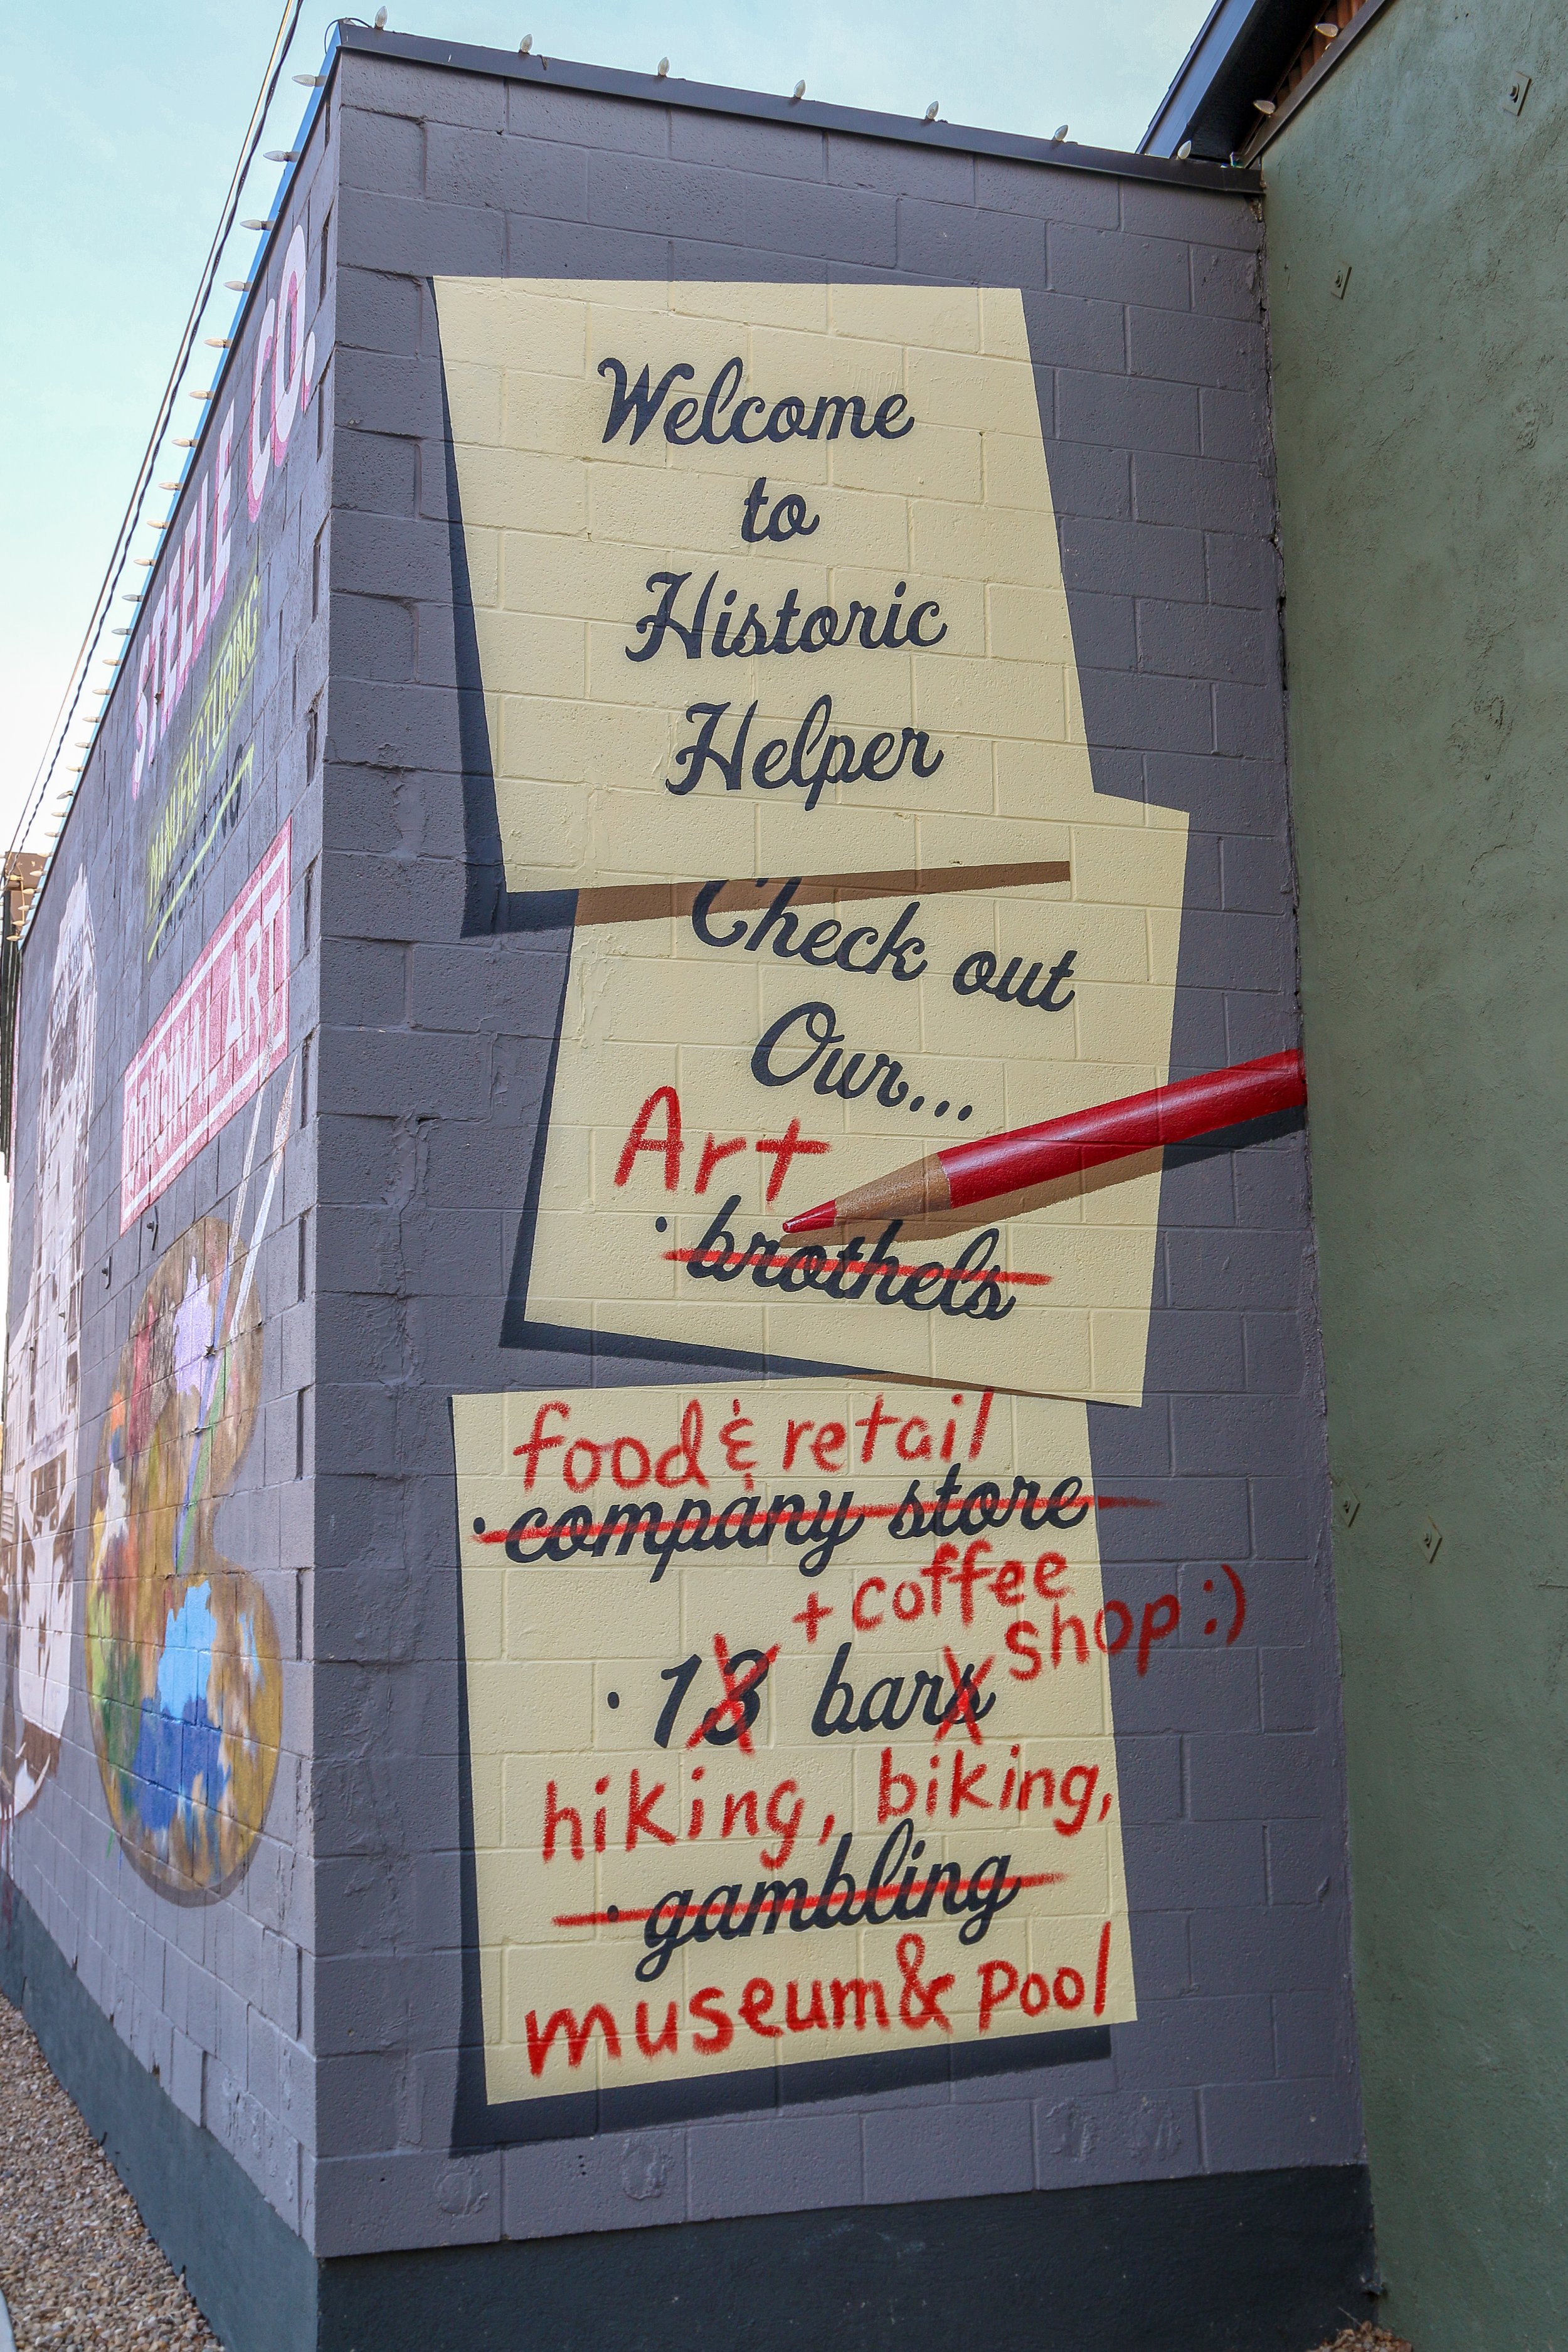 STEELE CO.
MANUFACTURING
ORIGINAL ART
Welcome
to
Historic
Helper
Check out
Our...
Art
· brothels
food & retail
· company store
+ coffee
shop :)
· 13 bars
hiking, biking,
· gambling
museum & pool